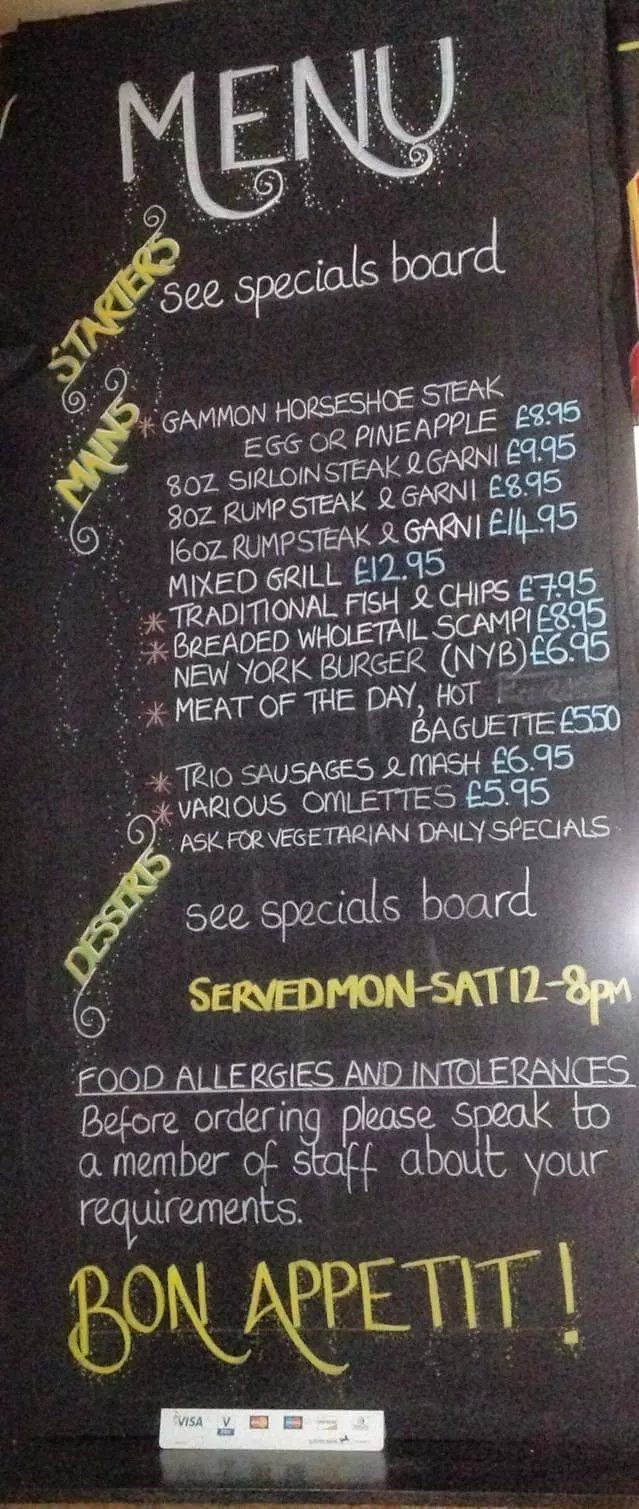 MENU
STARTERS
see specials board
MAINS
* GAMMON HORSESHOE STEAK
EGG OR PINEAPPLE £8.95
8OZ SIRLOIN STEAK & GARNI £9.95
8OZ RUMP STEAK & GARNI £8.95
16OZ RUMP STEAK & GARNI £14.95
MIXED GRILL £12.95
* TRADITIONAL FISH & CHIPS £7.95
* BREADED WHOLETAIL SCAMPI £8.95
NEW YORK BURGER (NYB) £6.95
* MEAT OF THE DAY, HOT
BAGUETTE £5.50
* TRIO SAUSAGES & MASH £6.95
* VARIOUS OMLETTES £5.95
ASK FOR VEGETARIAN DAILY SPECIALS
DESSERTS
see specials board
SERVED MON-SAT 12-8pm
FOOD ALLERGIES AND INTOLERANCES
Before ordering please speak to
a member of staff about your
requirements.
BON APPETIT!
VISA V